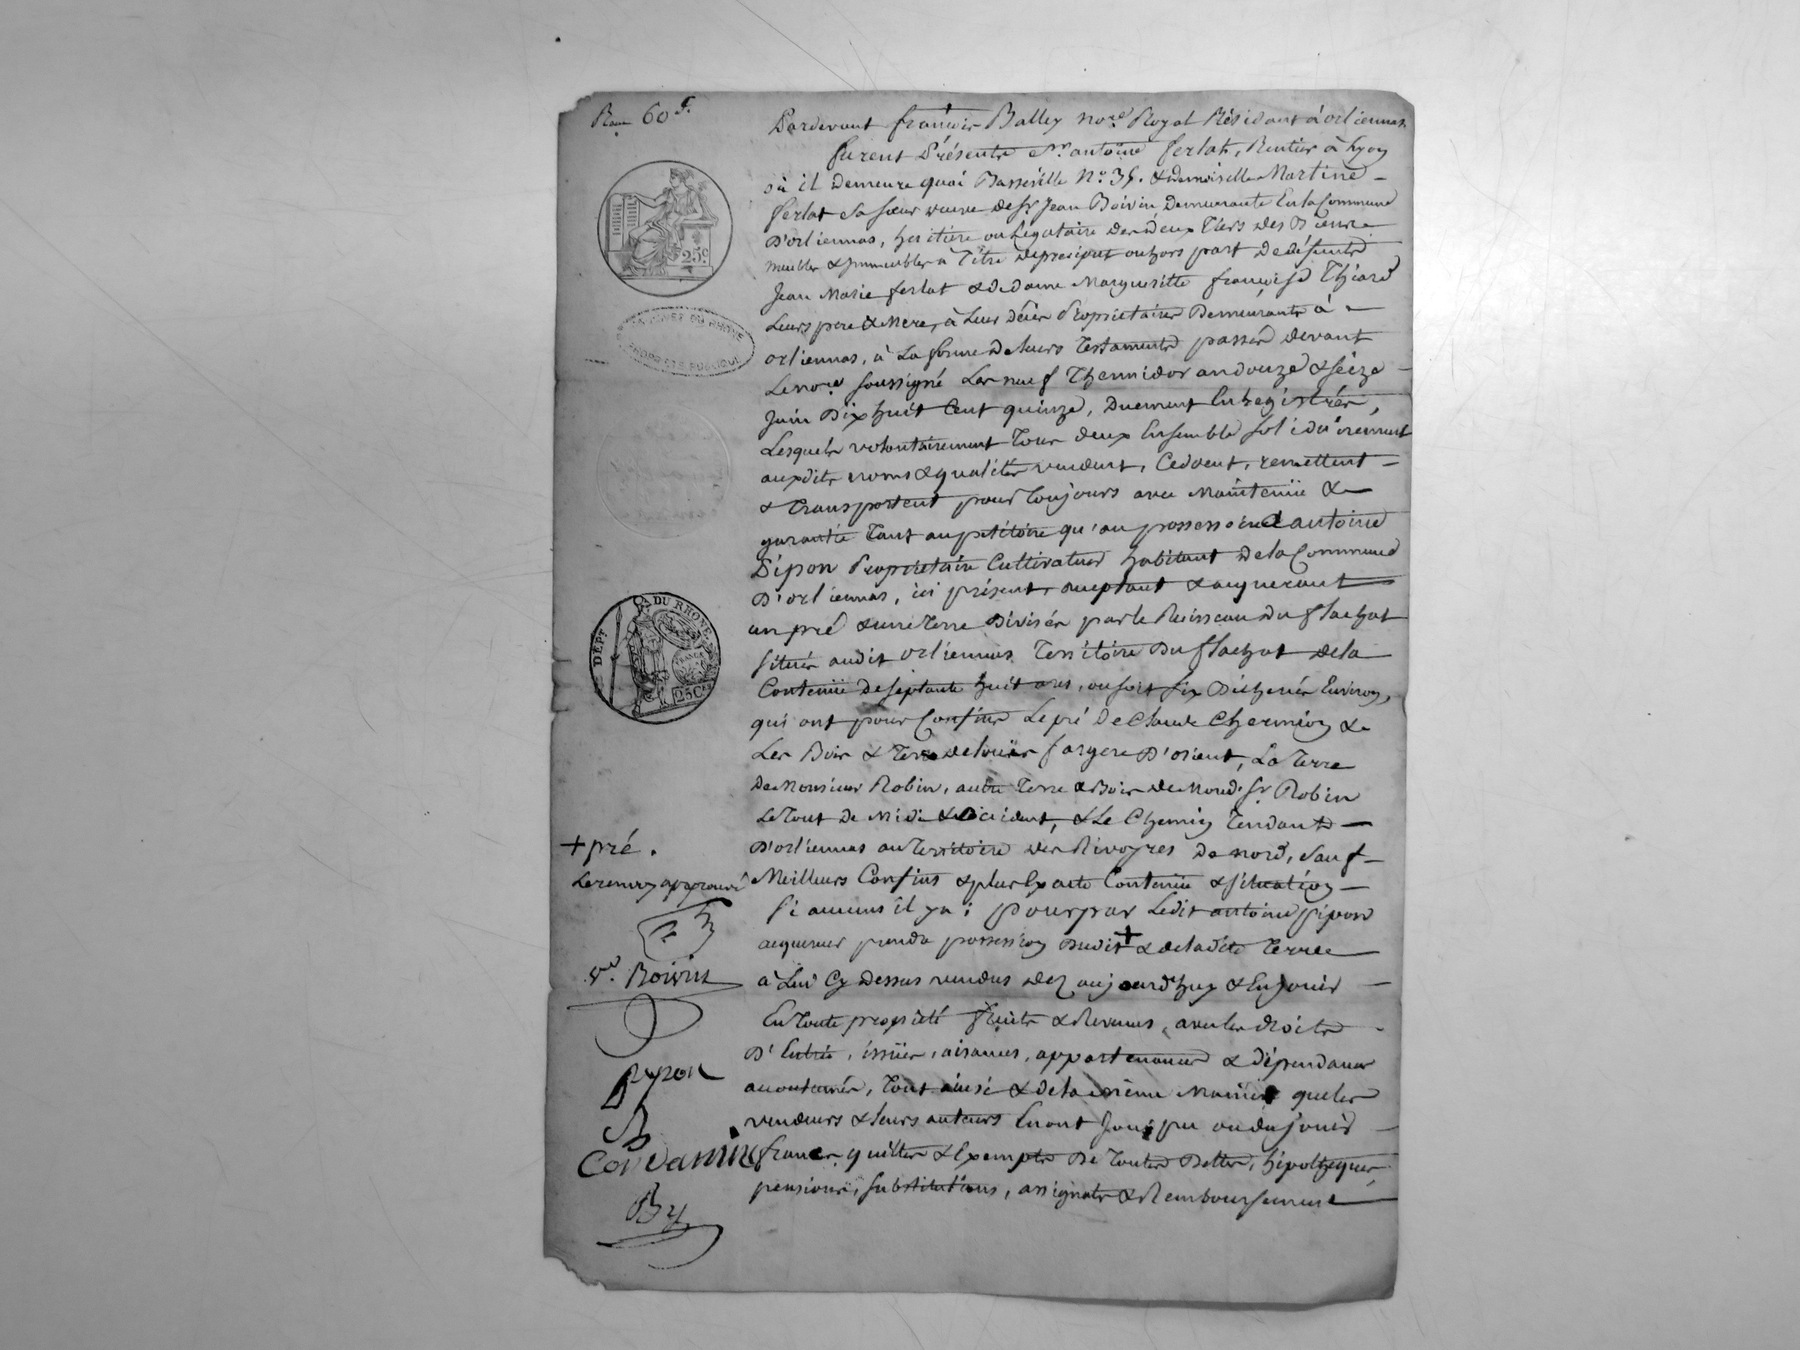 60 f.
Pardevant françois Balley no.re Royal Résidant à orliennas
furent Présents Sr. antoine ferlat, Rentier à Lyon
où il demeure quai Basseville No. 35. & demoiselle Martine
ferlat sa sœur veuve de Sr Jean Boivin Demeurante En la Commune
D'orliennas, heritiers ou Legataires des deux Tiers des Biens
meubles & immeubles à Titre de preciput ou hors part de défunts
Jean Marie ferlat & de dame Margueritte françoise Thiard
Leurs pere & Mere, à Leur décès Proprietaires Demeurants à
orliennas, à La forme de leurs Testaments passés devant
Le no.re soussigné Les neuf Thermidor an douze & seize
Juin Dix huit Cent quinze, Duement Enregistrés,
Lesquels volontairement Tous deux Ensemble solidairement
auxdits noms & qualités vendent, Cedent, remettent
& Transportent pour Toujours avec Maintenüe &
garantie Tant au petitoire qu'au possessoire à antoine
Pipon Proprietaire Cultivateur habitant de la Commune
D'orliennas, ici présent, acceptant & acquerant
un pré & une Terre Divisés par le Ruisseau du flachat
situés audit orliennas Territoire Du flachat de la
Contenüe De septante huit ares, ou soit six Bicherées Environ,
qui ont pour Confins Le pré De Claude Chermion &
Les Bois & Terre de Loüis fargere D'orient, La Terre
De Monsieur Robin, autre Terre & Bois de Mond. Sr Robin
Le Tout de Midi & Occident, & Le Chemin Tendant
D'orliennas au Territoire des Rivoyres De nord, sauf
Meilleurs Confins & plus Exacte Contenüe & situation
si aucuns il y a; pour par Ledit antoine pipon
acquereur prendre possession Dudit + & de ladite Terre
à Lui Cy Dessus vendus dez aujourd'huy & En jouir
En Toute proprieté fruits & Revenus, avec les droits
D'Entrée, issües, aisances, appartenances & dépendances
accoutumés, Tout ainsi & de la même Maniere que les
vendeurs & leurs auteurs En ont Joui, pu ou du jouir
francs, quittes & Exempts De Toutes Dettes, hipotheques
pensions, substitutions, assignats & Remboursement
25 c
+ pré.
Le renvoy approuvé
DÉPT DU RHONE
25 C
ve. Boivin
Pypon
Condamin
By